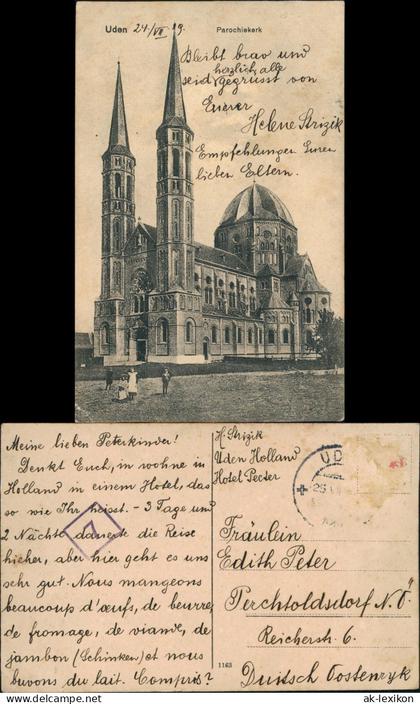 Uden 24/VII 19. Parochiekerk
Bleibt brav und
seid herzlich alle gegrüsst von
Eurer
Helene Strizik
Empfehlungen Euren
lieben Eltern.
Meine lieben Peterkinder!
Denkt Euch, in wohne in
Holland in einem Hotel, das
so wie Ihr heisst. - 3 Tage und
2 Nächte dauerte die Reise
hieher, aber hier geht es uns
sehr gut. Nous mangeons
beaucoup d'œufs, de beurre,
de fromage, de viande, de
jambon (Schinken) et nous
buvons du lait. Compris?
H. Strizik
Uden Holland
Hotel Peeter
UD
25 VII
Fräulein
Edith Peter
Perchtoldsdorf N.Ö
Reicherstr. 6.
Duitsch Oostenryk
1163
ak-lexikon.com